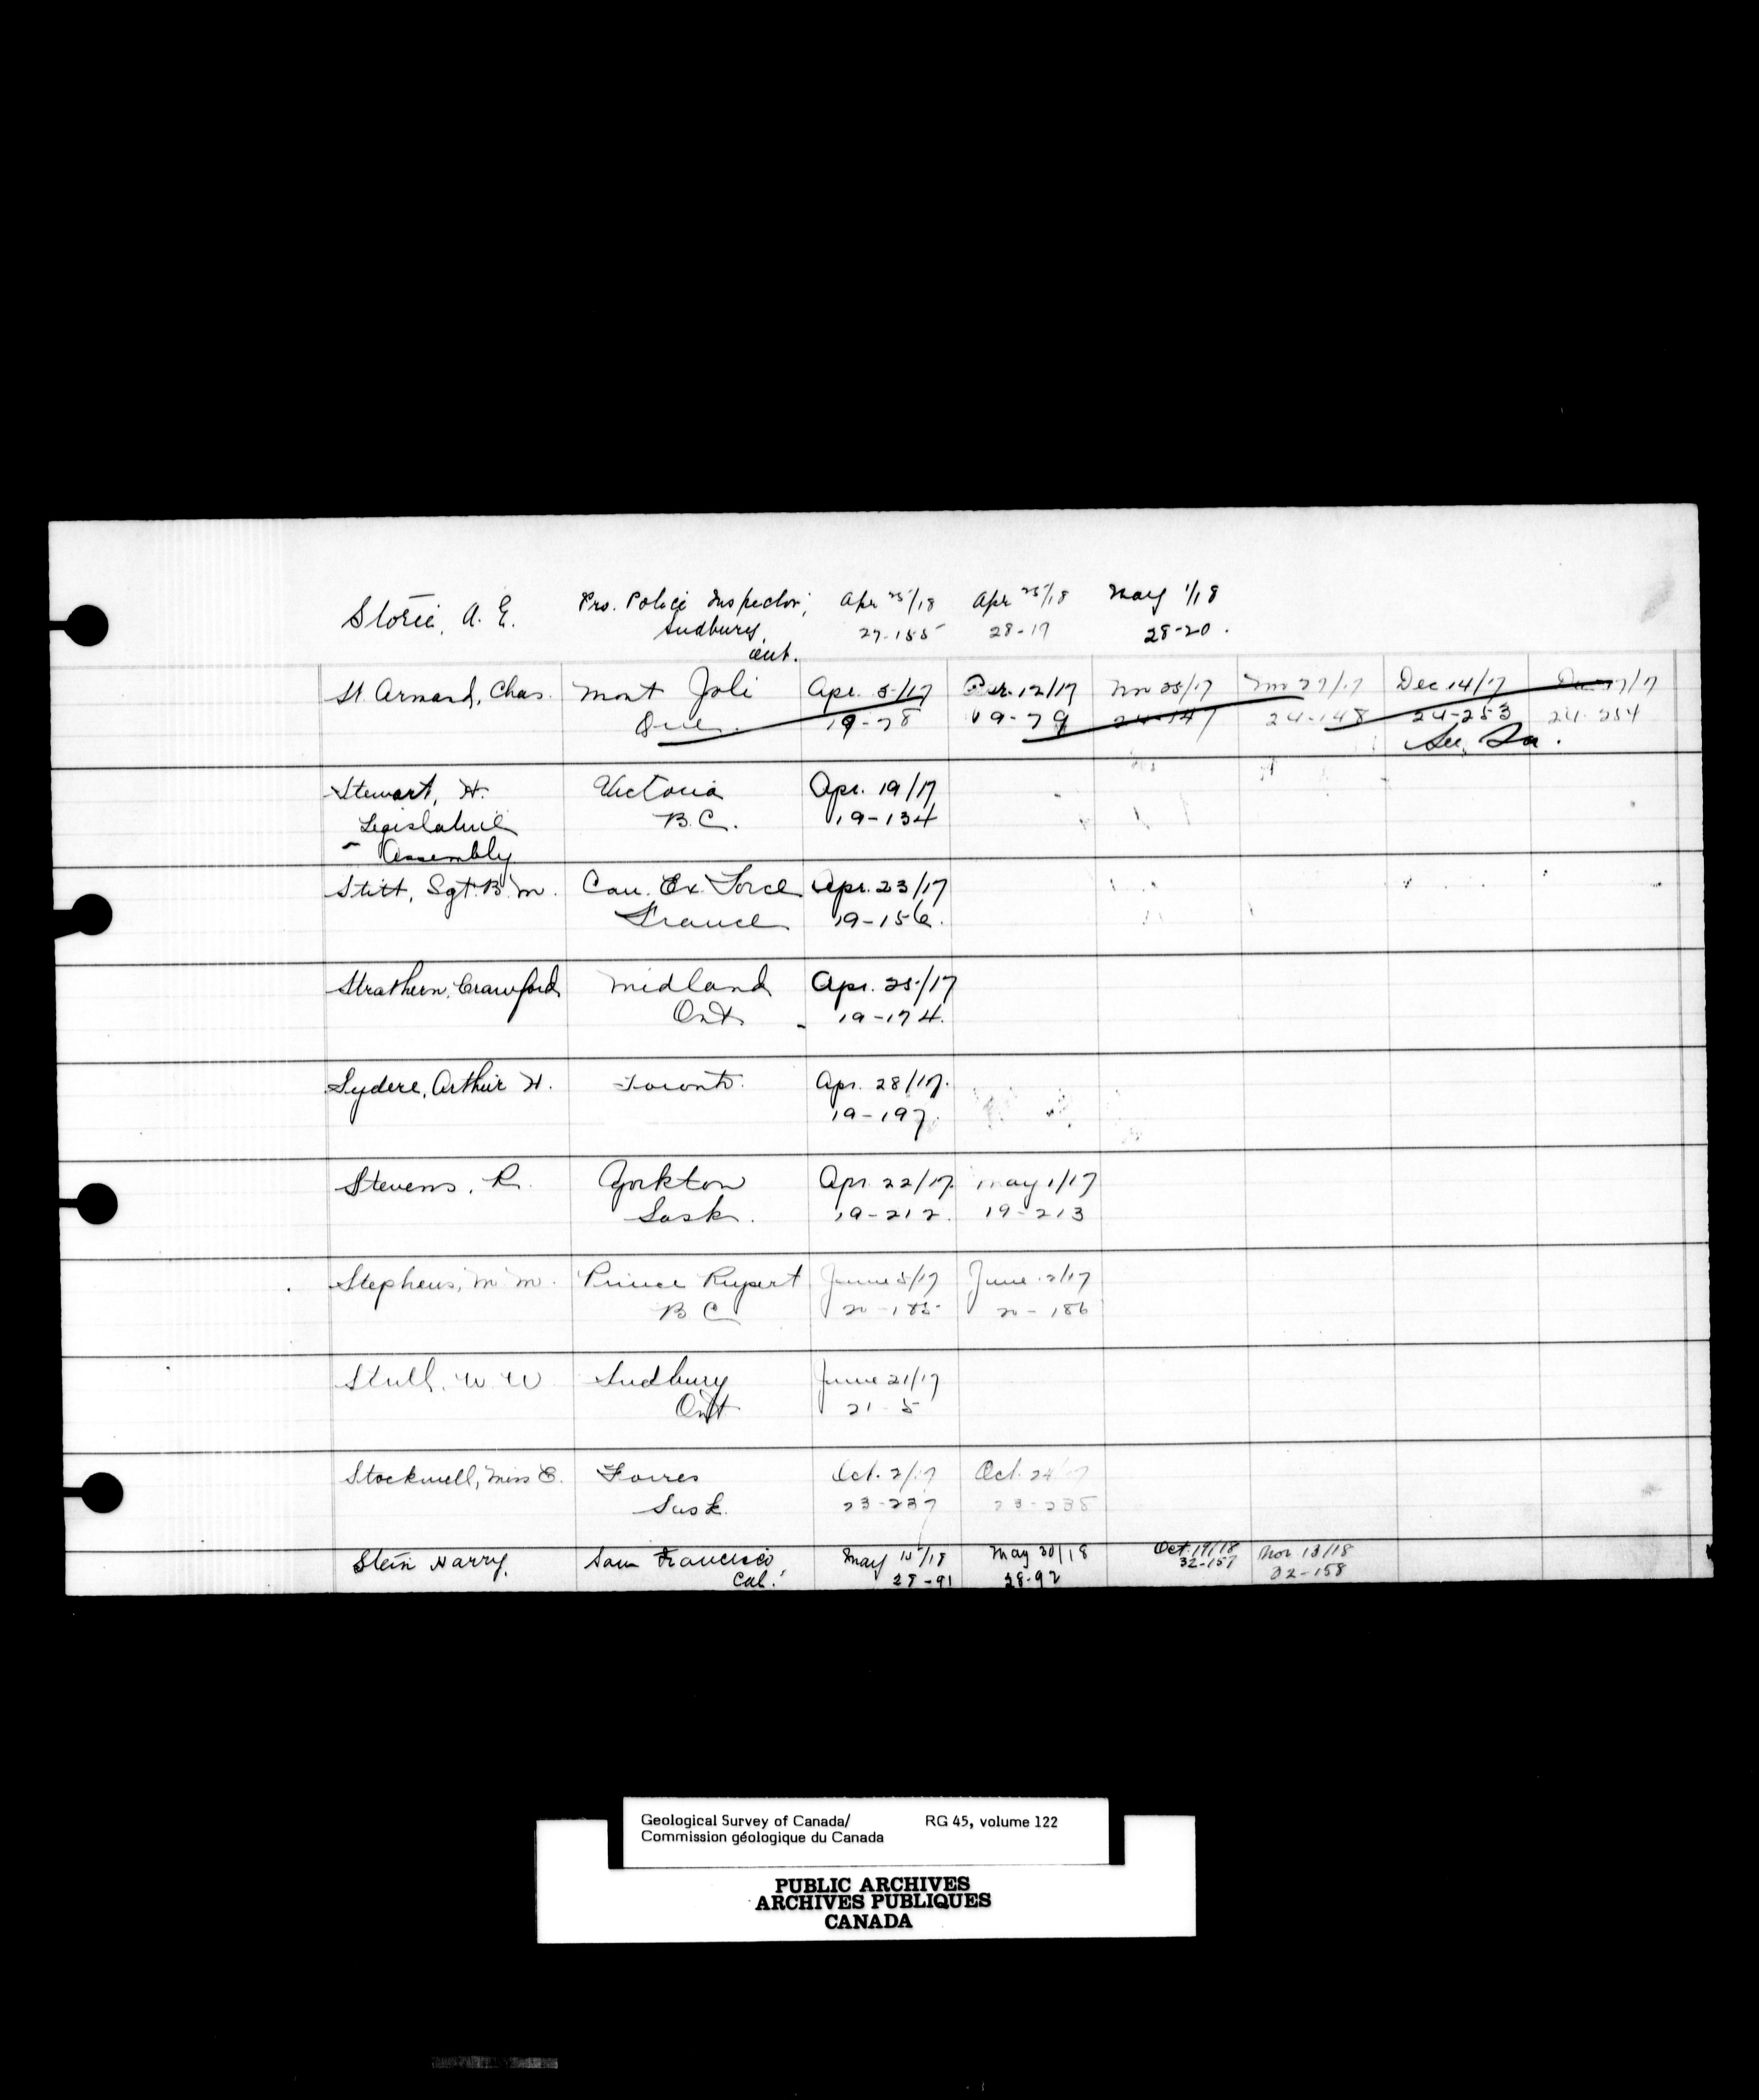 Storie, A. E. Pro. Police Inspector, Apr 25/18 Apr 25/18 May 1/18
Sudbury, 27-155 28-19 28-20.
Ont.
St. Armand, Chas. Mont Joli Apr. 5/17 Apr. 12/17 Nov 25/17 Nov 27/17 Dec 14/17 Dec 17/17
Que. 19-78 19-79 24-147 24-148 24-253 24-254
See, Sa.
Stewart, H. Victoria Apr. 19/17
Legislative B.C. 19-134
- Assembly
Stitt, Sgt. B. M. Can. Ex. Force Apr. 23/17
France 19-156.
Strathern, Crawford Midland Apr. 25/17
Ont. 19-174.
Sydere, Arthur H. Toronto. Apr. 28/17.
19-197.
Stevens, R. Yorkton Apr. 22/17. May 1/17
Sask. 19-212. 19-213
Stephens, M. M. Prince Rupert June 5/17 June 12/17
B C 20-185 20-186
Stull, W. W Sudbury June 21/17
Ont 21-5
Stockwell, Miss E. Forres Oct. 2/17 Oct. 24/17
Sask. 23-237 23-238
Stein Harry, San Francisco May 15/18 May 30/18 Oct. 19/18 Nov 13/18
Cal. 28-91 28-92 32-157 32-158
Geological Survey of Canada/ RG 45, volume 122
Commission géologique du Canada
PUBLIC ARCHIVES
ARCHIVES PUBLIQUES
CANADA